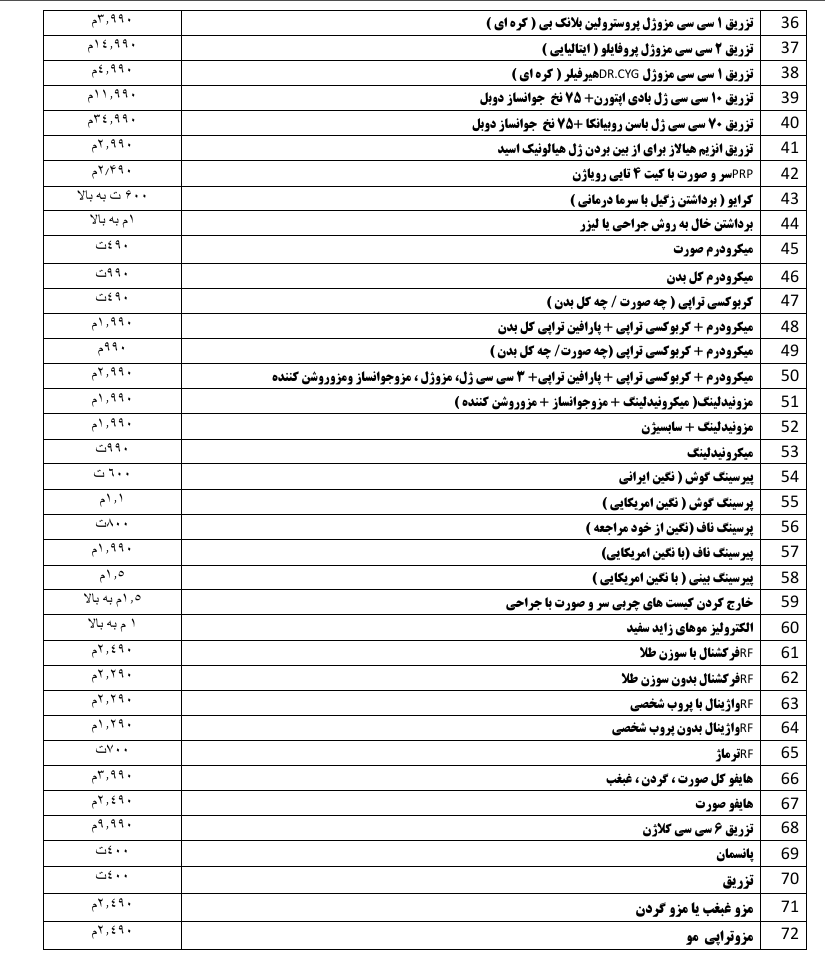 36 تزریق ۱ سی سی مزوژل پروسترولین بلانک بی ( کره ای ) ۳,۹۹۰م
37 تزریق ۲ سی سی مزوژل پروفایلو ( ایتالیایی ) ۱٤,۹۹۰م
38 تزریق ۱ سی سی مزوژل DR.CYGهیرفیلر ( کره ای ) ٤,۹۹۰م
39 تزریق ۱۰ سی سی ژل بادی اپتورن+ ۷۵ نخ جوانساز دوبل ۱۱,۹۹۰م
40 تزریق ۷۰ سی سی ژل باسن روبیانکا +۷۵ نخ جوانساز دوبل ۳٤,۹۹۰م
41 تزریق انزیم هیالاز برای از بین بردن ژل هیالونیک اسید ۲,۹۹۰م
42 PRPسر و صورت با کیت ۴ تایی رویاژن ۲/۴۹۰م
43 کرایو ( برداشتن زگیل با سرما درمانی ) ۶۰۰ ت به بالا
44 برداشتن خال به روش جراحی یا لیزر ۱م به بالا
45 میکرودرم صورت ٤۹۰ت
46 میکرودرم کل بدن ۹۹۰ت
47 کربوکسی تراپی ( چه صورت / چه کل بدن ) ٤۹۰ت
48 میکرودرم + کربوکسی تراپی + پارافین تراپی کل بدن ۱,۹۹۰م
49 میکرودرم + کربوکسی تراپی (چه صورت/ چه کل بدن ) ۹۹۰م
50 میکرودرم + کربوکسی تراپی + پارافین تراپی+ ۳ سی سی ژل، مزوژل ، مزوجوانساز ومزوروشن کننده ۲,۹۹۰م
51 مزونیدلینگ( میکرونیدلینگ + مزوجوانساز + مزوروشن کننده ) ۱,۹۹۰م
52 مزونیدلینگ + سابسیژن ۱,۹۹۰م
53 میکرونیدلینگ ۹۹۰ت
54 پیرسینگ گوش ( نگین ایرانی ٦۰۰ ت
55 پرسینگ گوش ( نگین امریکایی ) ۱,۱م
56 پرسینگ ناف (نگین از خود مراجعه ) ۸۰۰ت
57 پیرسینگ ناف (با نگین امریکایی) ۱,۹۹۰م
58 پیرسینگ بینی ( با نگین امریکایی ) ۱,۵م
59 خارج کردن کیست های چربی سر و صورت با جراحی ۱,۵م به بالا
60 الکترولیز موهای زاید سفید ۱ م به بالا
61 RFفرکشنال با سوزن طلا ۲,٤۹۰م
62 RFفرکشنال بدون سوزن طلا ۲,۲۹۰م
63 RFواژینال با پروب شخصی ۲,۲۹۰م
64 RFواژینال بدون پروب شخصی ۱,۲۹۰م
65 RFترماژ ۷۰۰ت
66 هایفو کل صورت ، گردن ، غبغب ۳,۹۹۰م
67 هایفو صورت ۲,٤۹۰م
68 تزریق ۶ سی سی کلاژن ۹,۹۹۰م
69 پانسمان ٤۰۰ت
70 تزریق ٤۰۰ت
71 مزو غبغب یا مزو گردن ۲,٤۹۰م
72 مزوتراپی مو ۲,٤۹۰م